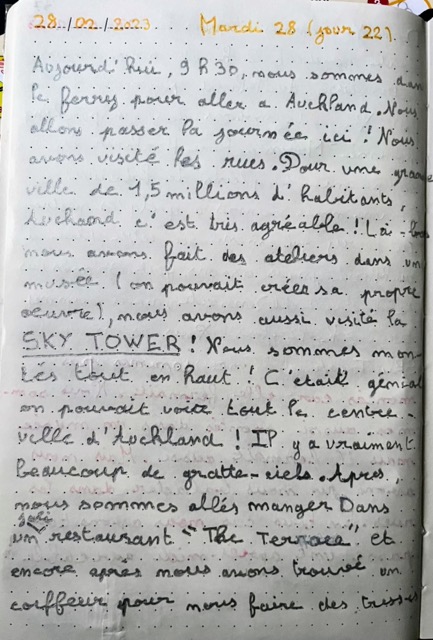 28/02/2023 Mardi 28 (jour 22).
Aujourd'hui, 9h30, nous sommes dans
le ferry pour aller a Auckland. Nous
allons passer la journée ici ! Nous
avons visité les rues. Pour une grande
ville de 1,5 millions d'habitants,
c'est très agréable ! Là-bas
nous avons fait des ateliers dans un
musée (on pouvait créer sa propre
oeuvre), nous avons aussi visité la
SKY TOWER ! Nous sommes mon-
tés tout en haut ! C'était génial
on pouvait voire tout le centre-
ville d'Auckland ! Il y a vraiment
beaucoup de gratte-ciels. Apres,
nous sommes allés manger Dans
joli
un restaurant "The Terrace" et
encore après nous avons trouvé un
coiffeur pour nous faire des tresses